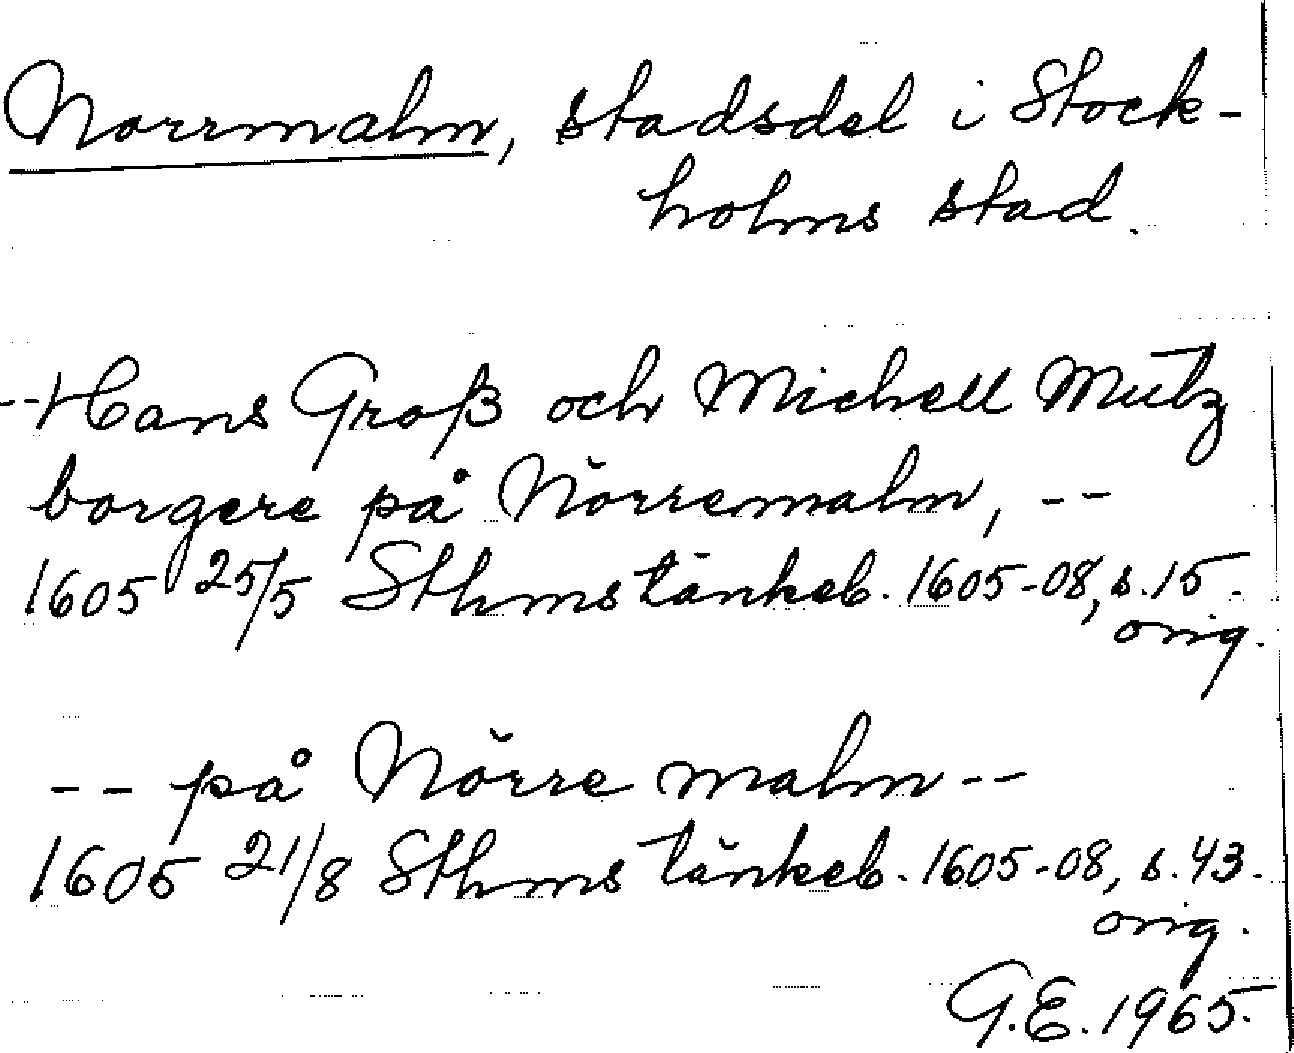 Norrmalm, stadsdel i Stock-
holms stad.
-- Hans Groß och Michell Mutz
borgere på Nörremalm, --
1605 25/5 Sthms tänkeb. 1605-08, s. 15.
orig.
-- på Nörre malm --
1605 21/8 Sthms tänkeb. 1605-08, s. 43.
orig.
G.E. 1965.